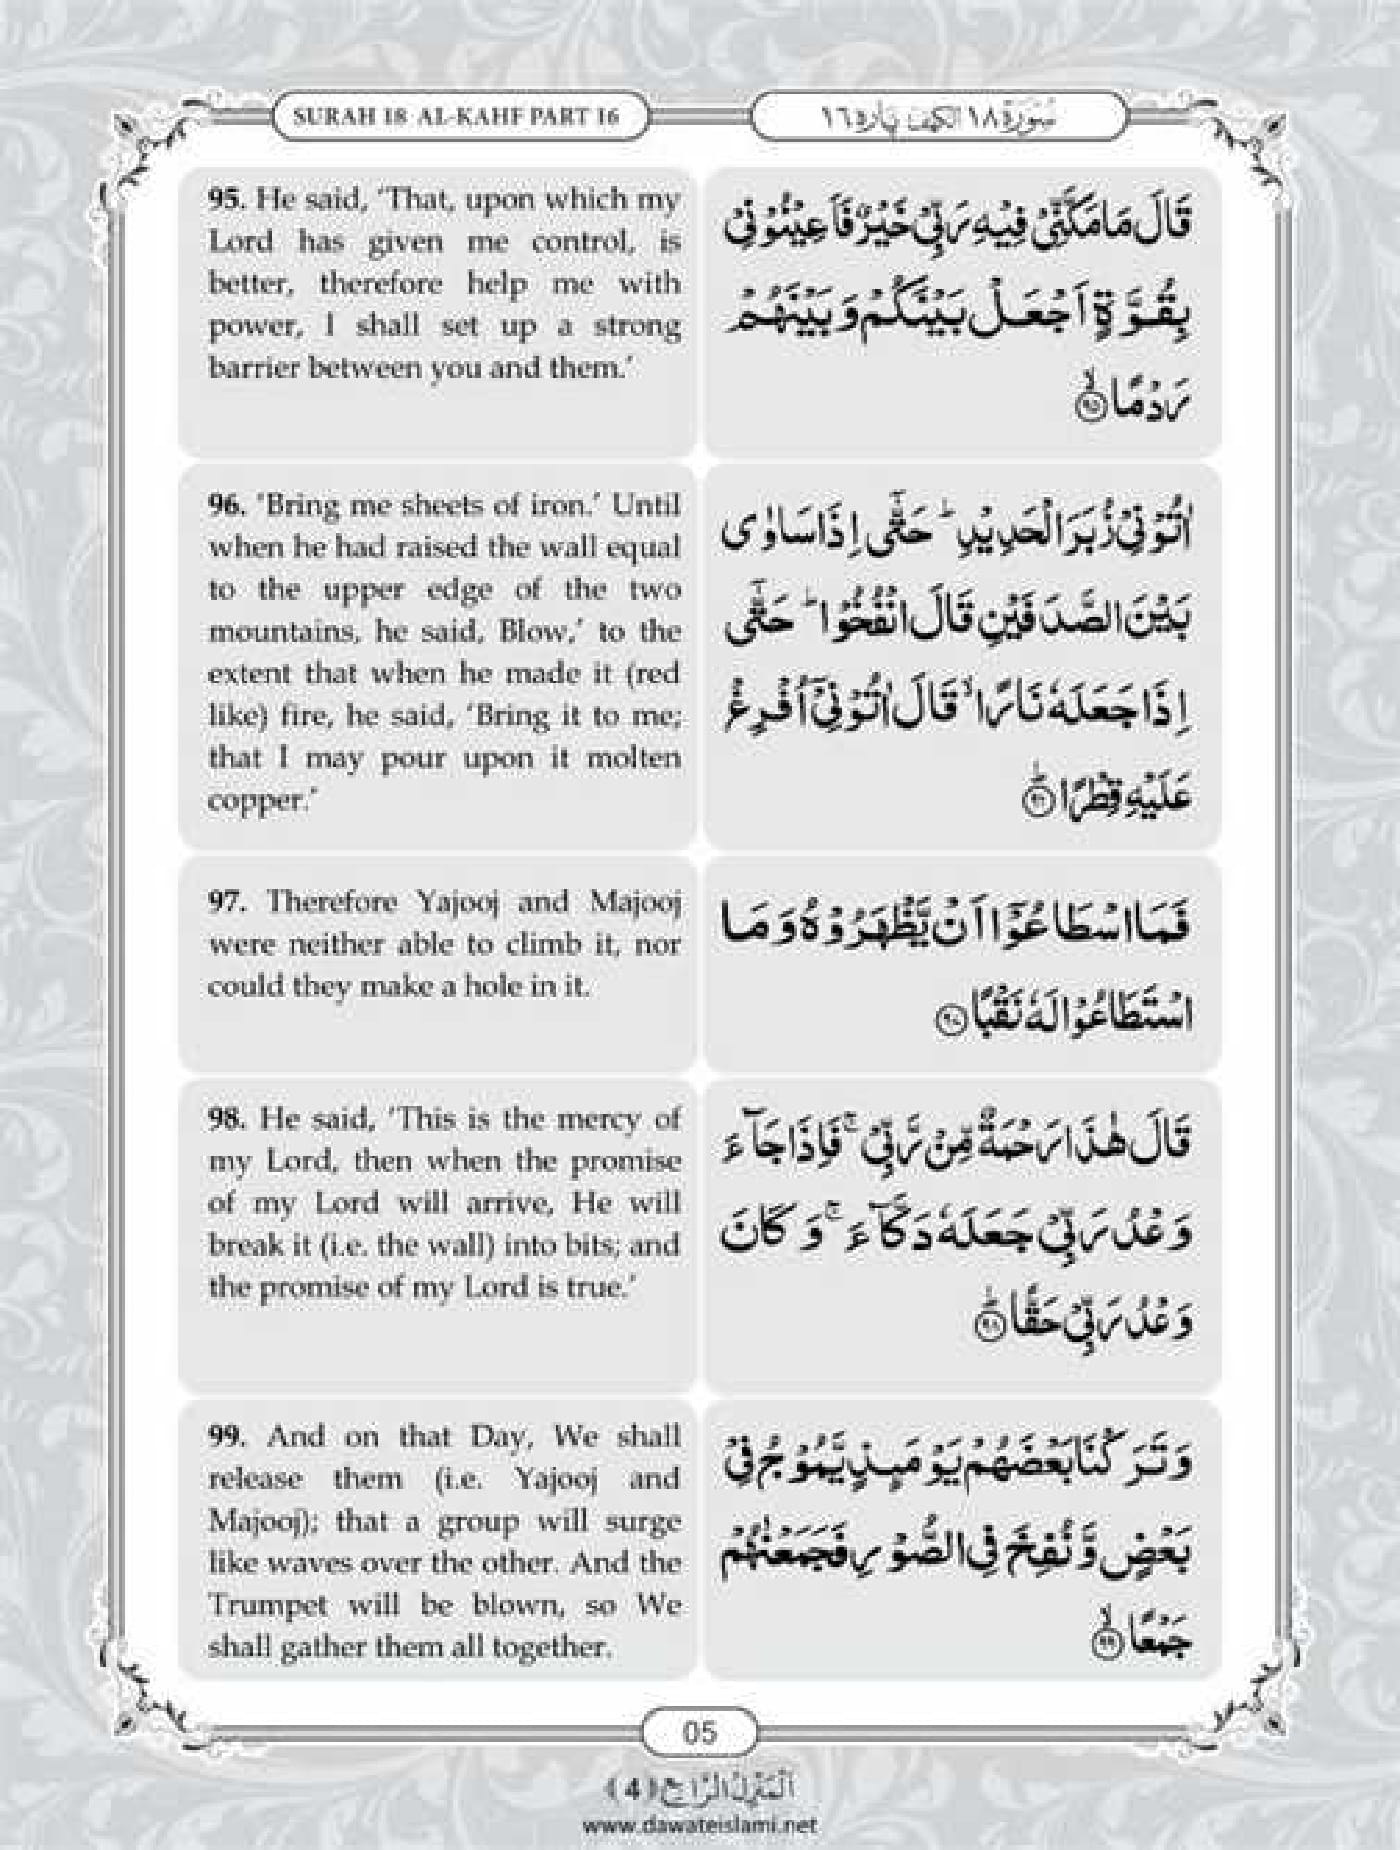 SURAH 18 AL-KAHF PART 16
سُورَة ١٨ الكهف پاره ١٦
95. He said, ‘That, upon which my
Lord has given me control, is
better, therefore help me with
power, I shall set up a strong
barrier between you and them.’
قَالَ مَا مَكَّنِّیْ فِیْهِ رَبِّیْ خَیْرٌ فَاَعِیْنُوْنِیْ
بِقُوَّةٍ اَجْعَلْ بَیْنَكُمْ وَ بَیْنَهُمْ
رَدْمًاۙ ۹۵
96. ‘Bring me sheets of iron.’ Until
when he had raised the wall equal
to the upper edge of the two
mountains, he said, Blow,’ to the
extent that when he made it (red
like) fire, he said, ‘Bring it to me;
that I may pour upon it molten
copper.’
اٰتُوْنِیْ زُبَرَ الْحَدِیْدِؕ حَتّٰۤى اِذَا سَاوٰى
بَیْنَ الصَّدَفَیْنِ قَالَ انْفُخُوْاؕ حَتّٰۤى
اِذَا جَعَلَهٗ نَارًاۙ قَالَ اٰتُوْنِیْۤ اُفْرِغْ
عَلَیْهِ قِطْرًاؕ ۹۶
97. Therefore Yajooj and Majooj
were neither able to climb it, nor
could they make a hole in it.
فَمَا اسْطَاعُوْۤا اَنْ یَّظْهَرُوْهُ وَ مَا
اسْتَطَاعُوْا لَهٗ نَقْبًا ۹۷
98. He said, ‘This is the mercy of
my Lord, then when the promise
of my Lord will arrive, He will
break it (i.e. the wall) into bits; and
the promise of my Lord is true.’
قَالَ هٰذَا رَحْمَةٌ مِّنْ رَّبِّیْۚ فَاِذَا جَآءَ
وَعْدُ رَبِّیْ جَعَلَهٗ دَكَّآءَۚ وَ كَانَ
وَعْدُ رَبِّیْ حَقًّاؕ ۹۸
99. And on that Day, We shall
release them (i.e. Yajooj and
Majooj); that a group will surge
like waves over the other. And the
Trumpet will be blown, so We
shall gather them all together.
وَ تَرَكْنَا بَعْضَهُمْ یَوْمَىٕذٍ یَّمُوْجُ فِیْ
بَعْضٍ وَّ نُفِخَ فِی الصُّوْرِ فَجَمَعْنٰهُمْ
جَمْعًاۙ ۹۹
05
اَلْمَنْزِلُ الرَّابِع (4)
www.dawateislami.net